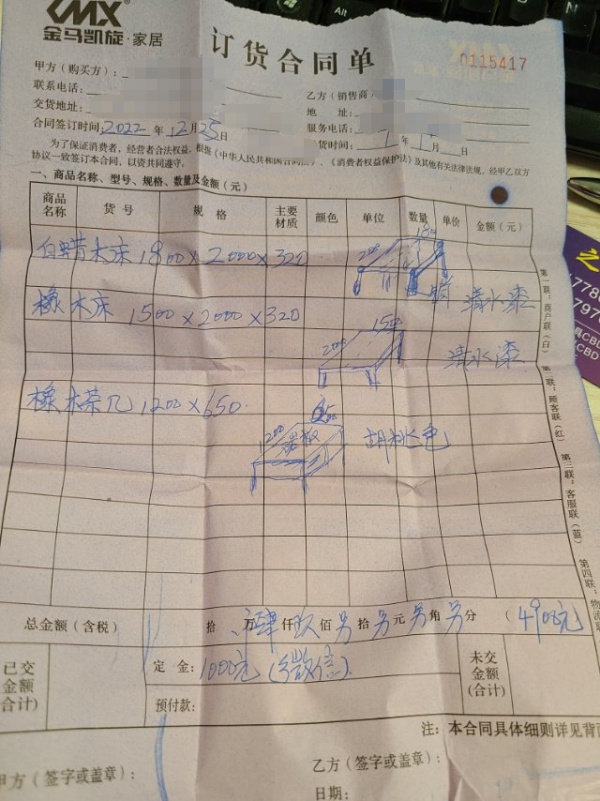 KMX
金马凯旋·家居
订货合同单
0115417
甲方（购买方）：
乙方（销售商）
联系电话：
地 址：
交货地址：
服务电话：
合同签订时间：2022 年 12 月 25 日
货时间： 1 年 1 月 日
为了保证消费者，经营者合法权益，根据《中华人民共和国合同法》、《消费者权益保护法》及其他有关法律法规，经甲乙双方
协议一致签订本合同，以资共同遵守。
一、商品名称、型号、规格、数量及金额（元）
商品名称 货 号 规 格 主要材质 颜色 单位 数量 单价 金额（元）
白蜡木床 1800×2000×320 200 180 清水漆
橡木床 1500×2000×320 200 150 清水漆
橡木茶几 1200×650 胡桃色
总金额（含税） 拾 万 肆 仟 玖 佰 另 拾 另 元 另 角 另 分 （4900元
已交金额（合计） 定 金：1000元（微信） 未交金额（合计）
预付款：
注：本合同具体细则详见背面
甲方（签字或盖章）：
乙方（签字或盖章）：
日期：
第一联：商户联（白） 第二联：顾客联（红） 第三联：客服联（蓝） 第四联：物流联
Alt
CBD
CBD